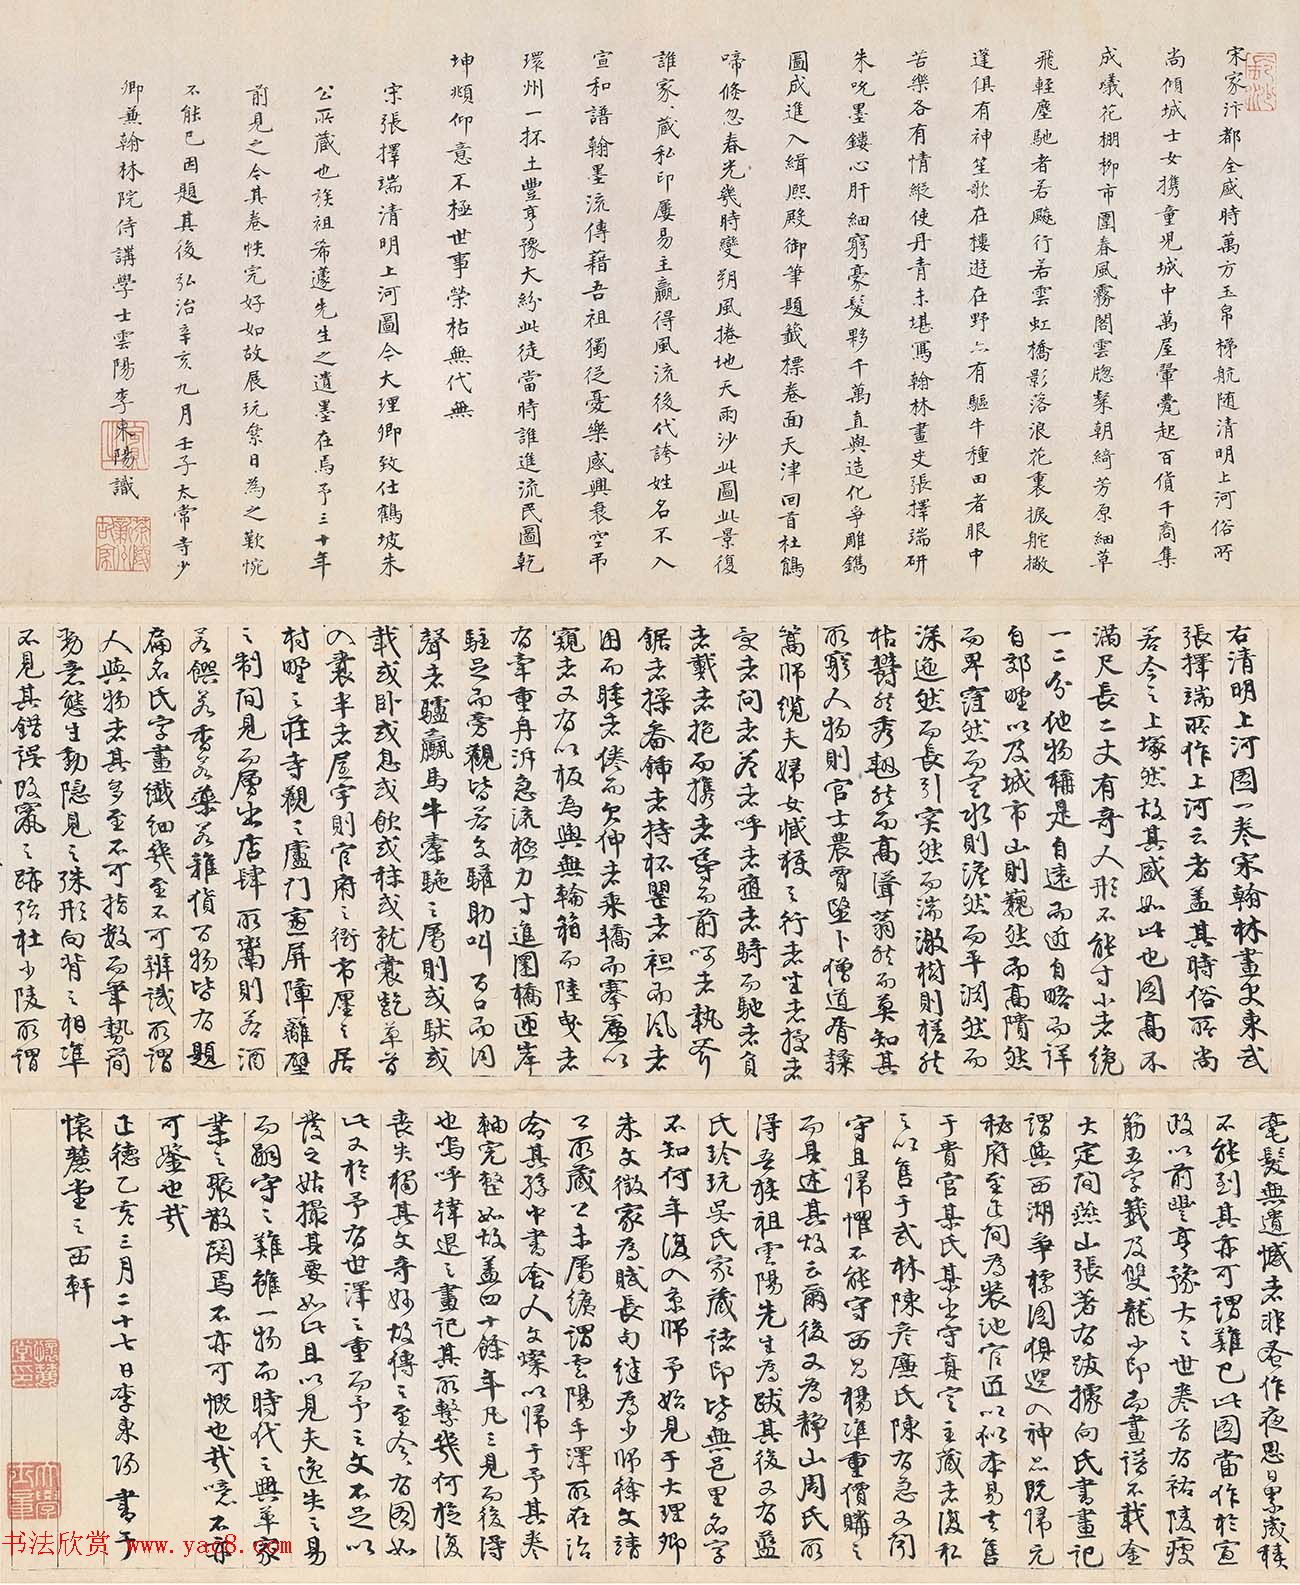 宋家汴都全盛時萬方玉帛梯航随清明上河俗所
尚傾城士女携童児城中萬屋翬甍起百貨千商集
成蟻花棚柳市圍春風霧閣雲牕粲朝綺芳原細草
飛輕塵馳者若飈行若雲虹橋影落浪花裏捩舵撇
篷俱有神笙歌在樓遊在野亦有驅牛種田者眼中
苦樂各有情縱使丹青未堪寫翰林畫史張擇端研
朱吮墨鏤心肝細窮豪髮夥千萬直與造化爭雕鐫
圖成進入緝熙殿御筆題籤標卷面天津回首杜鵑
啼倏忽春光幾時變朔風捲地天雨沙此圖此景復
誰家家藏私印屢易主贏得風流後代誇姓名不入
宣和譜翰墨流傳藉吾祖獨從憂樂感興衰空弔
環州一抔土豐亨豫大紛此徒當時誰進流民圖乾
坤頫仰意不極世事榮枯無代無
宋張擇端清明上河圖今大理卿致仕鶴坡朱
公所藏也族祖希蘧先生之遺墨在焉予三十年
前見之今其卷帙完好如故展玩絫日為之歎惋
不能已因題其後弘治辛亥九月壬子太常寺少
卿兼翰林院侍講學士雲陽李東陽識
右清明上河图一卷宋翰林畫史東武
張擇端所作上河云者盖其時俗所尚
若今之上塚然故其盛如此也圖高不
滿尺長二丈有奇人形不能寸小者纔
一二分他物稱是自遠而近自略而詳
自郊野以及城市山則巍然而高隤然
而卑窪然而空水則澹然而平淵然而
深迤然而長引突然而湍激樹則槎然
枯欝然秀翹然而高聳蓊然而莫知其
所窮人物則官士農賈醫卜僧道胥隸
篙師纜夫婦女臧獲之行者坐者授者
受者問者荅者呼者應者騎而馳者負
者戴者抱而携者導而前呵者執斧
鋸者操畚鍤者持杯罌者袒而風者
困而睡者倦而欠伸者乘轎而搴簾以
窺者又有以板為輿無輪箱而陸曳者
有牽重舟泝急流極力寸進圜橋匝岸
駐足而旁觀皆若交驩助叫百口而同
聲者驢騾馬牛橐駞之屬則或馱或
載或卧或息或飲或秣或就囊齕草首
入囊半者屋宇則官府之衙市廛之居
村野之莊寺觀之廬門窻屏障籬壁
之制間見而層出店肆所鬻則若酒
若饌若香若藥若雜貨百物皆有題
扁名氏字畫纖細幾至不可辨識所謂
人與物者其多至不可指数而筆勢簡
勁意態生動隐見之殊形向背之相準
不見其錯誤改竄之跡殆杜少陵所謂
毫髮無遺憾者非蚤作夜思日累歲積
不能到其亦可謂難已此图當作於宣
政以前豐亨豫大之世卷首有祐陵瘦
筋五字籤及雙龍小印而畫譜不載金
大定間燕山張著有跋據向氏書畫記
謂與西湖爭標图俱選入神品既歸元
秘府至正間為裝池官匠以似本易去售
于貴官某氏某出守真定主藏者復私
之以售于武林陳彦廉氏陳有急又聞
守且歸懼不能守西昌楊準重價購之
而具述其故云爾後又為静山周氏所
得吾族祖雲陽先生為跋其後又有藍
氏珍玩吳氏家藏諸印皆無邑里名字
不知何年復入京師予始見于大理卿
朱文徵家為賦長句继為少師徐文靖
公所藏公未屬纊謂雲陽手澤所在治
命其孫中書舍人文燦以歸于予其卷
軸完整如故盖四十餘年凡三見而後得
也嗚呼韓退之畫記其所繫幾何旋復
喪失獨其文奇妙故傳之至今今有图如
此又於予有世澤之重而予之文不足以
發之姑撮其要如此且以見夫逸失之易
而嗣守之難雖一物而時代之興革家
業之聚散関焉不亦可慨也哉噫不亦
可鑒也哉
正德乙亥三月二十七日李東陽書于
懷麓堂之西軒
懷麓堂印
书法欣赏 www.yac8.com